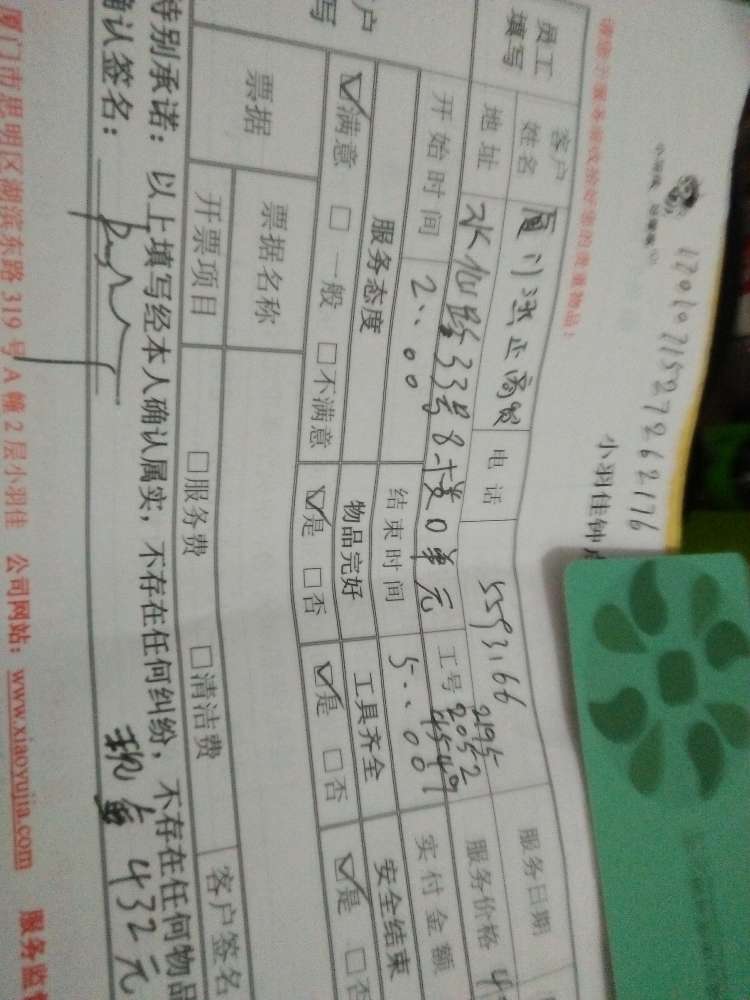 1701071527262176
小羽佳钟
请给予服务者收拾好您的贵重物品！
员工填写
客户姓名
电话 5593166
服务日期
地址 水仙路33号8楼0单元
工号 2195 2052 4549
服务价格
开始时间 2:00
结束时间 5:00
实付金额
户
写
服务态度
物品完好
工具齐全
安全结束
☑满意 □一般 □不满意
☑是 □否
☑是 □否
☑是 □否
票据
票据名称
开票项目
□服务费 □清洁费
客户签名
特别承诺：以上填写经本人确认属实，不存在任何纠纷，不存在任何物品
确认签名：
现金432元
厦门市思明区湖滨东路319号A幢2层小羽佳 公司网站：www.xiaoyujia.com 服务监